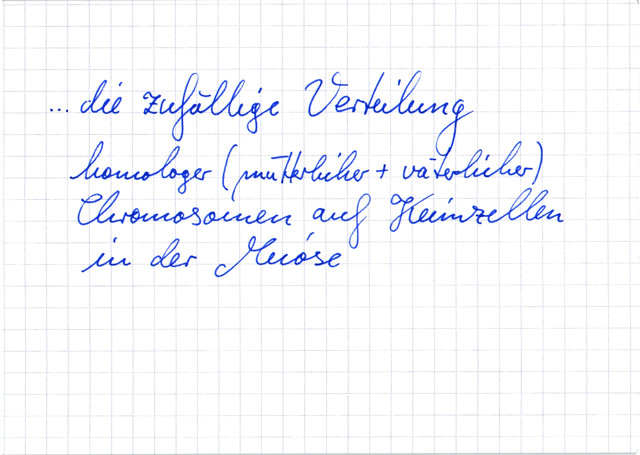 ... die zufällige Verteilung
homologer (mütterlicher + väterlicher)
Chromosomen auf Keimzellen
in der Meiose